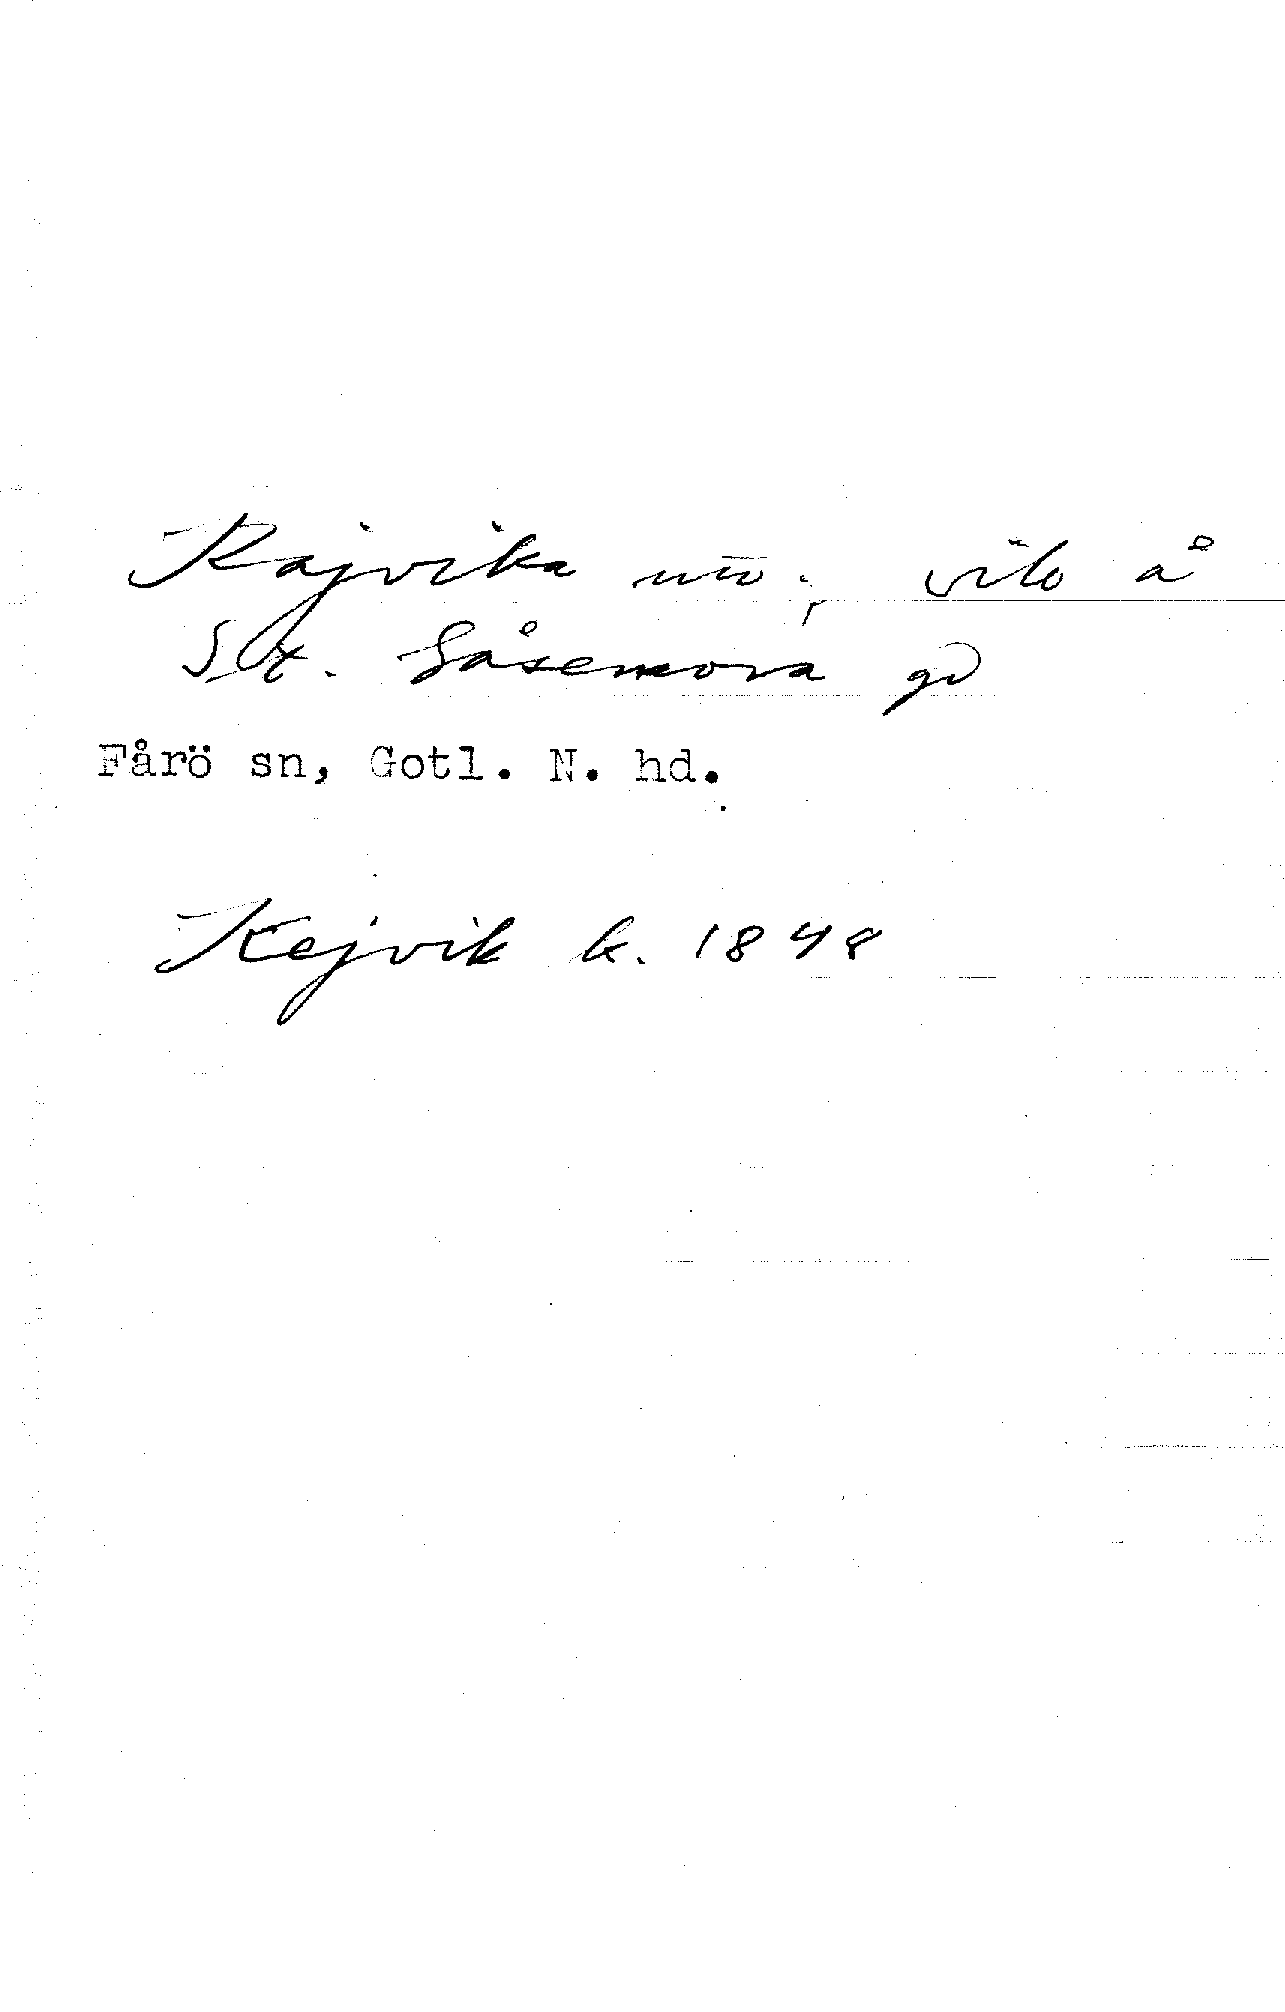 Kajvika uw., vik å
St. Gåsemora gd
Fårö sn, Gotl. N. hd.
Kejvik k. 1848